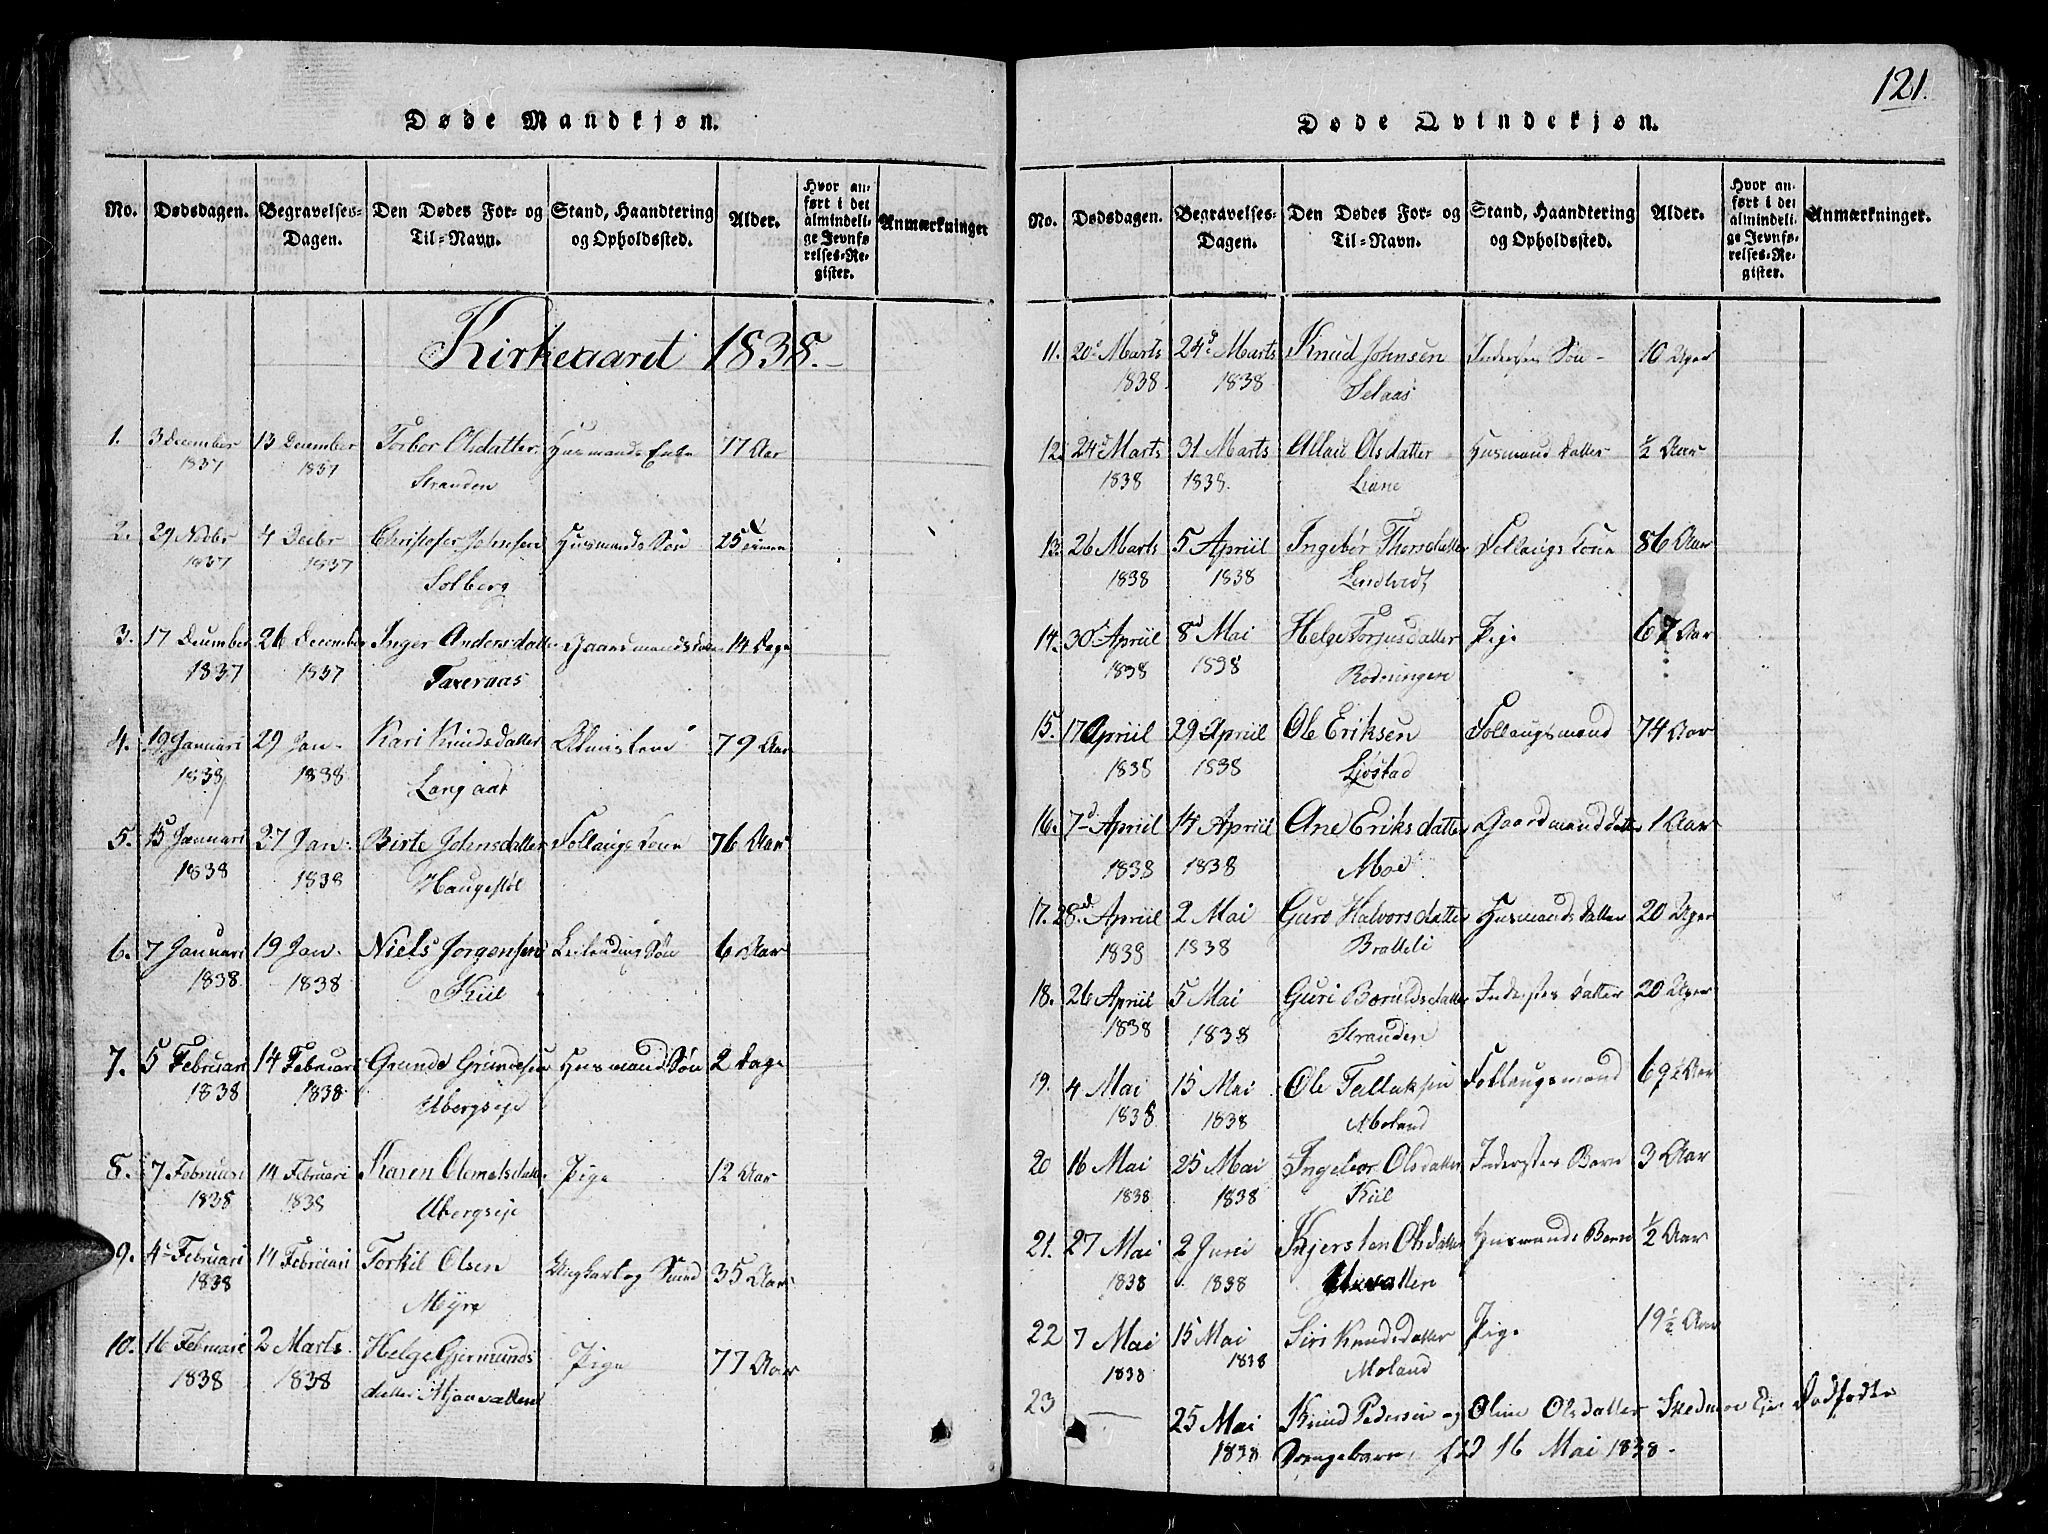 121.
Døde Mandkjøn.
No. Dødsdagen. Begravelses-Dagen. Den Dødes For- og Til-Navn. Stand, Haandtering og Opholdssted. Alder. Hvor anført i det almindelige Jevnførelses-Register. Anmærkninger
Kirkeaaret 1838.
1. 3 December 13 December Torbor Olsdatter Husmands Enke 77 Aar
1837 1837 Stranden
2. 29 Novbr 4 Decbr Christofer Johnsen Husmands Søn 25
1837 1837 Solberg
3. 17 December 26 December Inger Andersdatter Gaardmands 14 Dage
1837 1837
4. 19 Januari 29 Jan. Kari Knudsdatter 79 Aar
1838 1838
5. 15 Januari 27 Jan. Birte Johnsdatter Follaugs Kone 76 Aar
1838 1838 Haugestøl
6. 7 Januari 19 Jan. Niels Jørgensen Leilendings Søn 6 Aar
1838. 1838 Kiil
7. 5 Februari 14 Februari Grunde Grundesen Husmands Søn 2 Dage
1838 1838 Ubergseje
8. 7 Februari 14 Februari Karen Olsdatter Pige 12 Aar
1838 1838 Ubergseje
9. 4 Februari 14 Februari Torkil Olsen Ungkarl og 35 Aar
1838 Myre
10. 16 Februari 2 Marts Helge Gjermunds Pige 77 Aar
1838 1838 datter Mjaavatten
Døde Qvindekjøn.
No. Dødsdagen. Begravelses-Dagen. Den Dødes For- og Til-Navn. Stand, Haandtering og Opholdssted. Alder. Hvor anført i det almindelige Jevnførelses-Register. Anmærkninger.
11. 20 Marts 24 Marts Knud Johnsen Inderstes Søn 10 Uger
1838. 1838 Selaas
12. 24 Marts 31 Marts Olsdatter Husmand Datter ½ Aar
1838 1838. Liane
13. 26 Marts 5 Apriil Ingebor Thorsdatter Follaugs Kone 86 Aar
1838 1838 Lindtvedt
14. 30 Apriil 8 Mai Helge Torjusdatter Pige 67 Aar
1838 1838 Rødningen
15. 17 Apriil 29 Apriil Ole Eriksen Follaugsmand 74 Aar
1838 1838 Ljøstad
16. 7 Apriil 14 Apriil Ane Eriksdatter Gaardmand datter 1 Aar
1838 1838 Moe
17. 28 Apriil 2 Mai Guro Halvorsdatter Husmands datter 20 Uger
1838 1838 Bratteli
18. 26 Apriil 5 Mai Guri Boruldsdatter Inderstes datter 20 Uger
1838 1838 Stranden
19. 4 Mai 15 Mai Ole Tallaksen Follaugsmand 69½ Aar
1838 1838 Moland
20 16 Mai 25 Mai Ingebor Olsdatter Inderstes Barn 3 Aar
1838 1838 Kiil
21. 27 Mai 2 Juni Kjersten Olsdatter Husmands Barn ½ Aar
1838 1838
22 7 Mai 15 Mai Siri Knudsdatter Pige 19½ Aar
1838 1838 Moland
23 — 25 Mai Knud Pedersen og Oline Olsdatter Skedmoe Eje Dødfødte
1838 Drengebarn, fød 16 Mai 1838.